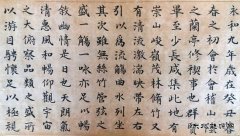 永和九年歲在癸丑暮
春之初會於會稽山陰
之蘭亭脩禊事也群賢
畢至少長咸集此地有
崇山峻領茂林脩竹又
有清流激湍映帶左右
引以為流觴曲水列坐
其次雖無絲竹管弦之
盛一觴一詠亦足以暢
敘幽情是日也天朗氣
清惠風和暢仰觀宇宙
之大俯察品類之盛所
以遊目騁懷足以極視